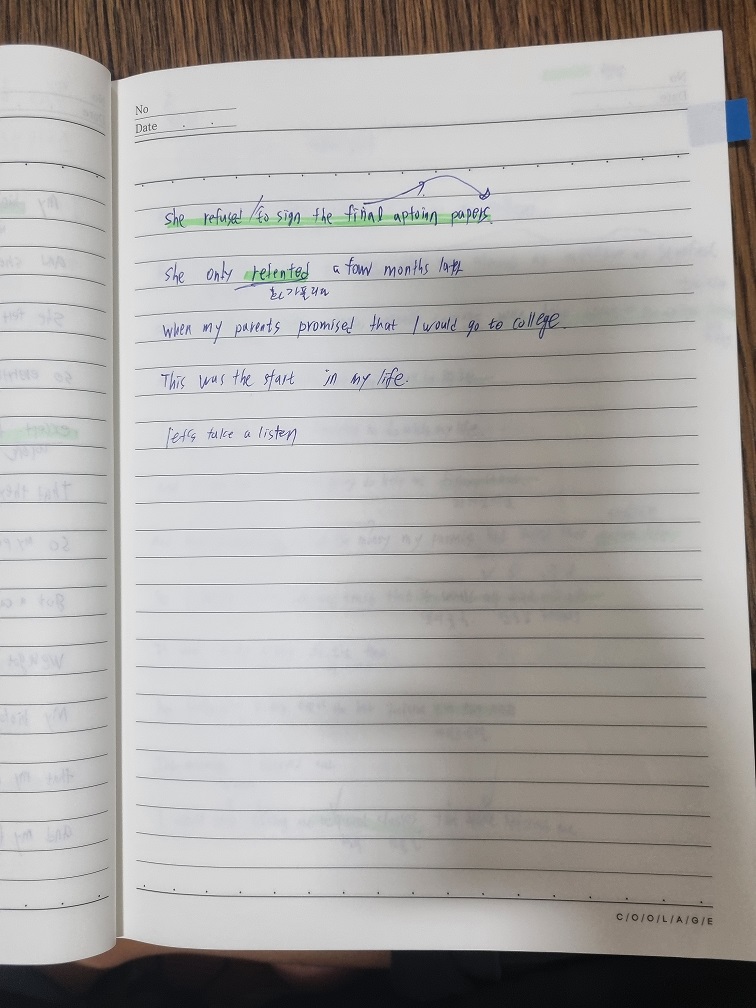 No
Date
She refused to sign the final aptoin papers.
She only relented a few months later
화가풀리다
when my parents promised that I would go to college.
This was the start in my life.
let's take a listen
C/O/O/L/A/G/E